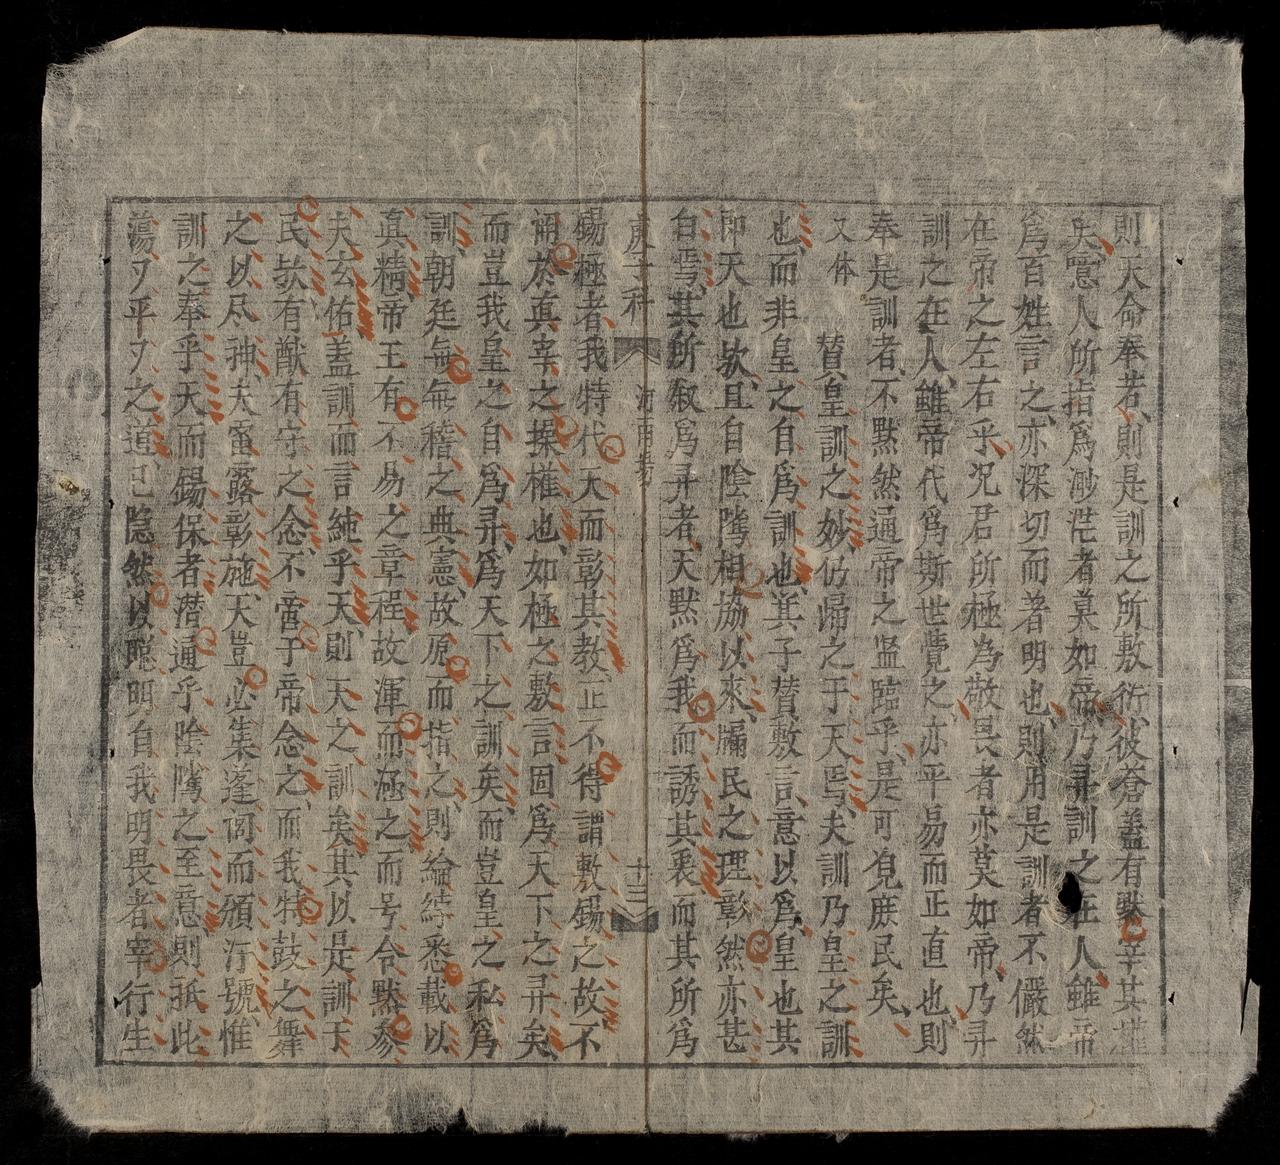 則天命奉若則是訓之所敷衍彼蒼蓋有默宰其權
矣噫人所指爲渺茫者莫如帝乃彛訓之在人雖帝
爲百姓言之亦深切而著明也則用是訓者不儼然
在帝之左右乎况君所極為敬畏者亦莫如帝乃彛
訓之在人雖帝代爲斯世覺之亦平易而正直也則
奉是訓者不默然通帝之監臨乎是可覓庶民矣
又体 賛皇訓之妙仍歸之于天焉夫訓乃皇之訓
也而非皇之自爲訓也箕子賛敷言意以爲皇也其
即天也欤且自陰隲相協以來牖民之理彰然亦甚
自焉其所叙爲彛者天默爲我而誘其衷而其所爲
庚子科 河南場 十三
錫極者我特代天而彰其教正不得謂敷錫之故不
謂於真宰之操権也如極之敷言固爲天下之彛矣
而豈我皇之自爲彛爲天下之訓矣而豈皇之私爲
訓朝廷每每稽之典憲故原而指之則綸綍悉載以
真精帝王有不易之章程故渾而涵之而号令默参
夫玄佑蓋訓而言純乎天則天之訓矣其以是訓于
民欤有猷有守之念不啻于帝念之而我特鼓之舞
之以尽神夫雷露彰施天豈必集蓬閭而頒汙號惟
訓之奉乎天而錫保者潛通乎陰隲之至意則抵此
蕩〻平〻之道已隐然以聰明自我明畏者宰行生